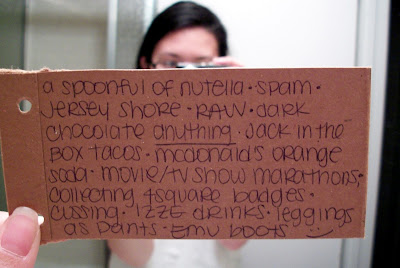 a spoonful of nutella · spam ·
Jersey Shore · RAW · dark
chocolate anything · Jack in the
Box tacos · mcdonald's orange
soda · movie/tv show marathons;
collecting 4square badges ·
cussing · IZZE drinks · leggings
as pants · Emu boots :)